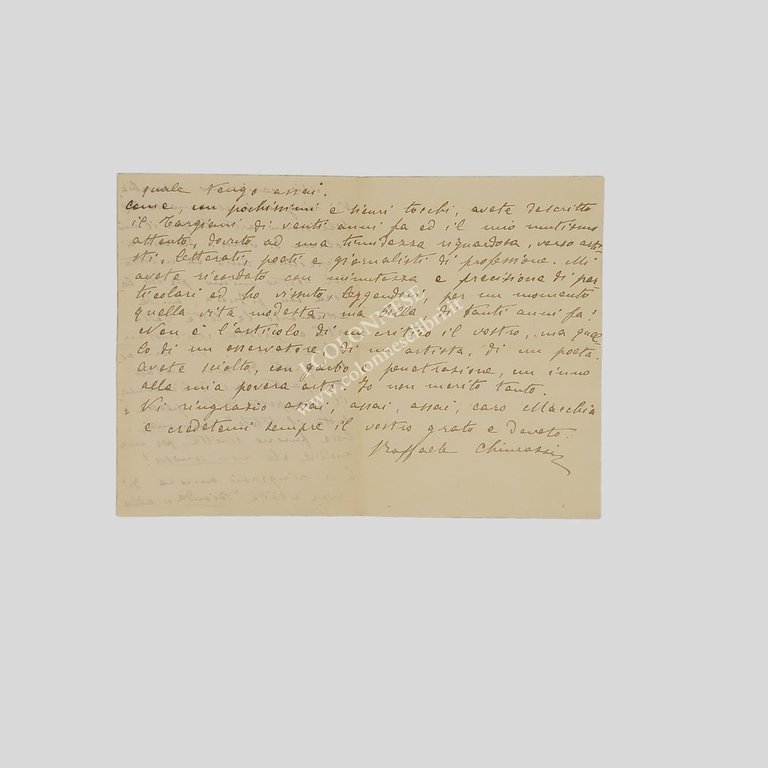 quale tengo assai.
Come un pochissimi e sicuri tocchi, avete descritto
il Targiani di venti anni fa ed il mio mutismo
attento, dovuto ad una timidezza riguardosa, verso arti-
sti, letterati, poeti e giornalisti di professione. Mi
avete ricordato con minutezza e precisione di par
ticolari ed ho vissuto, leggendovi, per un momento
quella vita modesta, ma bella di tanti anni fa!
Non è l'articolo di un critico il vostro, ma que
lo di un osservatore, di un artista, di un poeta.
avete sciolto, con garbo e penetrazione, un inno
alla mia povera arte. Io non merito tanto.
Vi ringrazio assai, assai, assai, caro Macchia
e credetemi sempre il vostro grato e devoto.
Raffaele Chiurazzi
I COLONNESE
www.colonneselibri.it